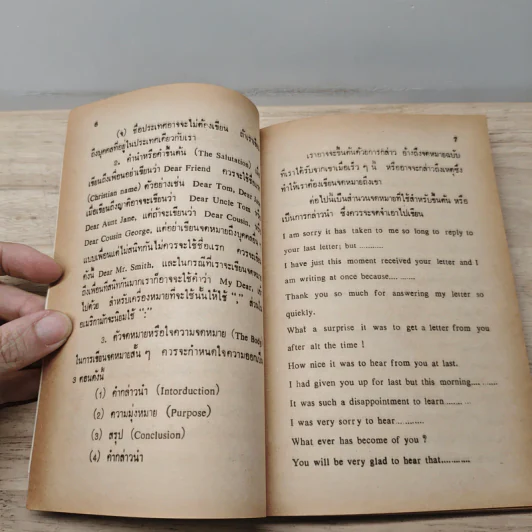 ๖
(จ) ชื่อประเทศอาจจะไม่ต้องเขียน ถ้า
ถึงบุคคลที่อยู่ในประเทศเดียวกับเรา
2. คำนำหรือคำขึ้นต้น (The Salutation)
เขียนถึงเพื่อนอย่าเขียนว่า Dear Friend ควรจะใช้ชื่อ
(Christian name) ตัวอย่างเช่น Dear Tom, Dear
เมื่อเขียนถึงญาติอาจจะเขียนว่า Dear Uncle Tom
Dear Aunt Jane, แต่ถ้าจะเขียนว่า Dear Cousin,
Dear Cousin George, แต่อย่าเขียนจดหมายถึงบุคคลอื่น
แบบเพื่อนแต่ไม่สนิทกันไม่ควรจะใช้ชื่อแรก ควรจะ
ดังนี้ Dear Mr. Smith, และในกรณีที่เราจะเขียนจดหมาย
ถึงเพื่อนที่สนิทกันมากเราก็อาจจะใช้คำว่า My Dear,
ไปด้วย สำหรับเครื่องหมายที่จะใช้นั้นให้ใช้ "," ส่วน
อเมริกามักจะนิยมใช้ ":"
3. ตัวจดหมายหรือใจความจดหมาย (The Body)
ในการเขียนจดหมายสั้น ๆ ควรจะกำหนดใจความออกเป็น
3 ตอนดังนี้
(1) คำกล่าวนำ (Intorduction)
(2) ความมุ่งหมาย (Purpose)
(3) สรุป (Conclusion)
(4) คำกล่าวนำ
๗
เราอาจจะขึ้นต้นด้วยการกล่าว อ้างถึงจดหมายฉบับ
ที่เราได้รับจากเขาเมื่อเร็ว ๆ นี้ หรืออาจจะกล่าวถึงเหตุซึ่ง
ทำให้เราต้องเขียนจดหมายถึงเขา
ต่อไปนี้เป็นสำนวนจดหมายที่ใช้สำหรับขึ้นต้น หรือ
เป็นการกล่าวนำ ซึ่งควรจะจดจำเอาไปเขียน
I am sorry it has taken to me so long to reply to
your last letter; but ..........
I have just this moment received your letter and I
am writing at once because..........
Thank you so much for answering my letter so
quiekly.
What a surprise it was to get a letter from you
after alt the time !
How nice it was to hear from you at last.
I had given you up for last but this morning..........
It was such a disappointment to learn..........
I was very sorry to hear..........
What ever has become of you ?
You will be very glad to hear that..........